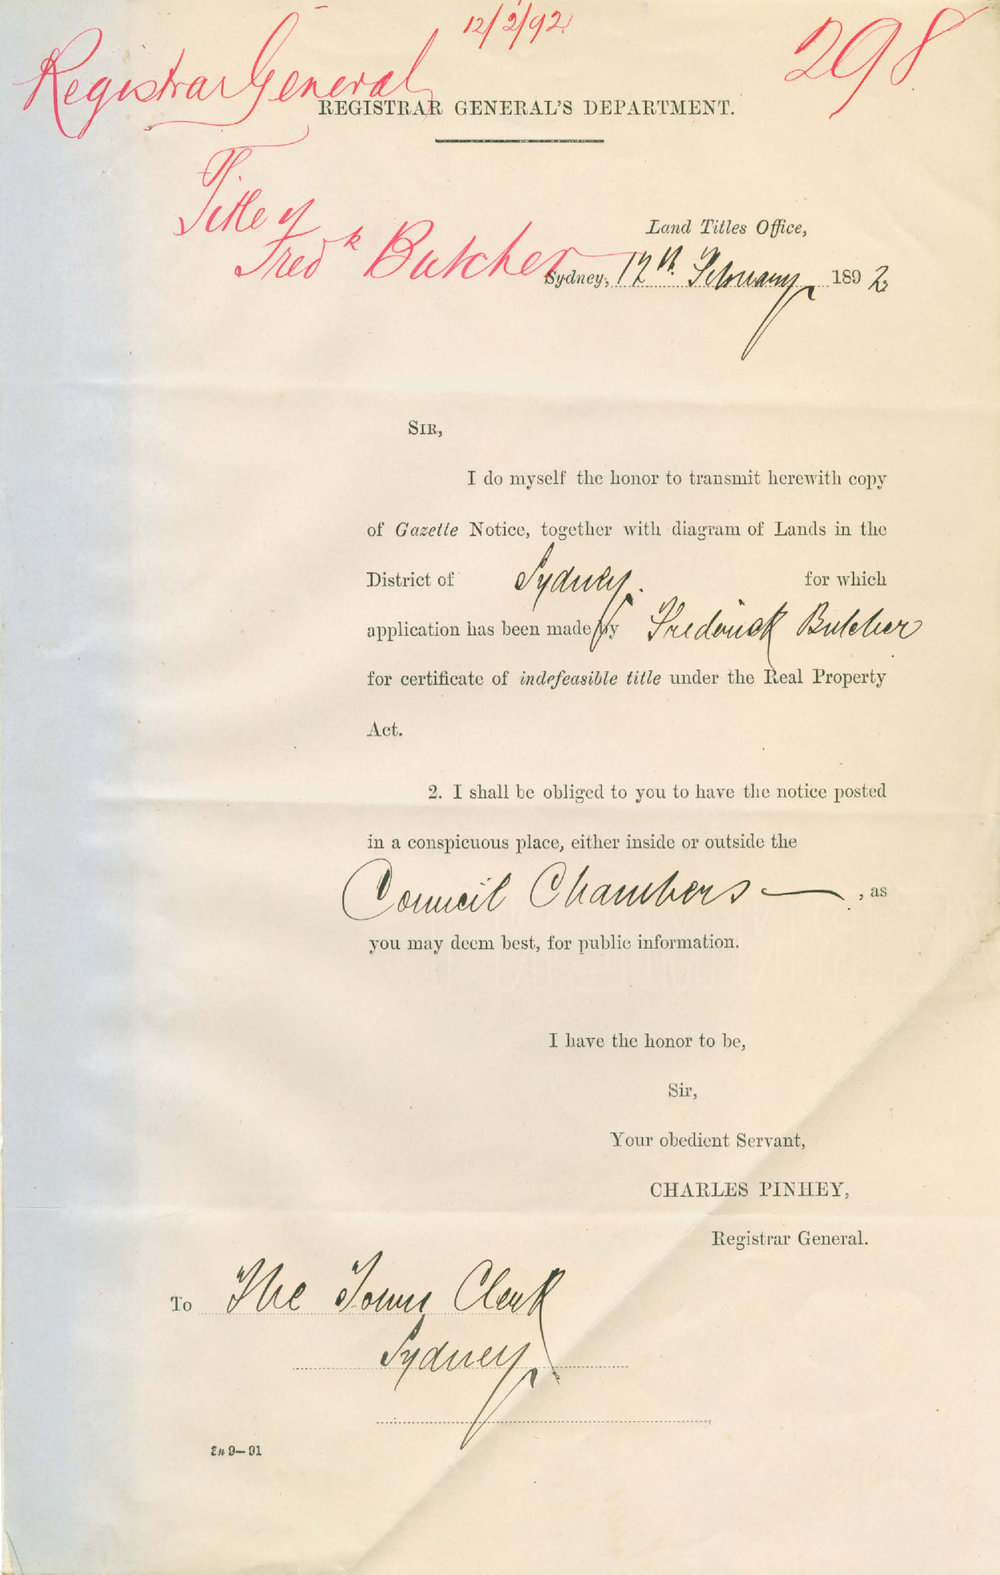 12/2/92
298
Registrar General
REGISTRAR GENERAL'S DEPARTMENT.
Title of
Fredk Butcher
Land Titles Office,
Sydney, 12th February 1892
SIR,
I do myself the honor to transmit herewith copy
of Gazette Notice, together with diagram of Lands in the
District of Sydney. for which
application has been made by Frederick Butcher
for certificate of indefeasible title under the Real Property
Act.
2. I shall be obliged to you to have the notice posted
in a conspicuous place, either inside or outside the
Council Chambers —, as
you may deem best, for public information.
I have the honor to be,
Sir,
Your obedient Servant,
CHARLES PINHEY,
Registrar General.
To The Town Clerk
Sydney
9—91